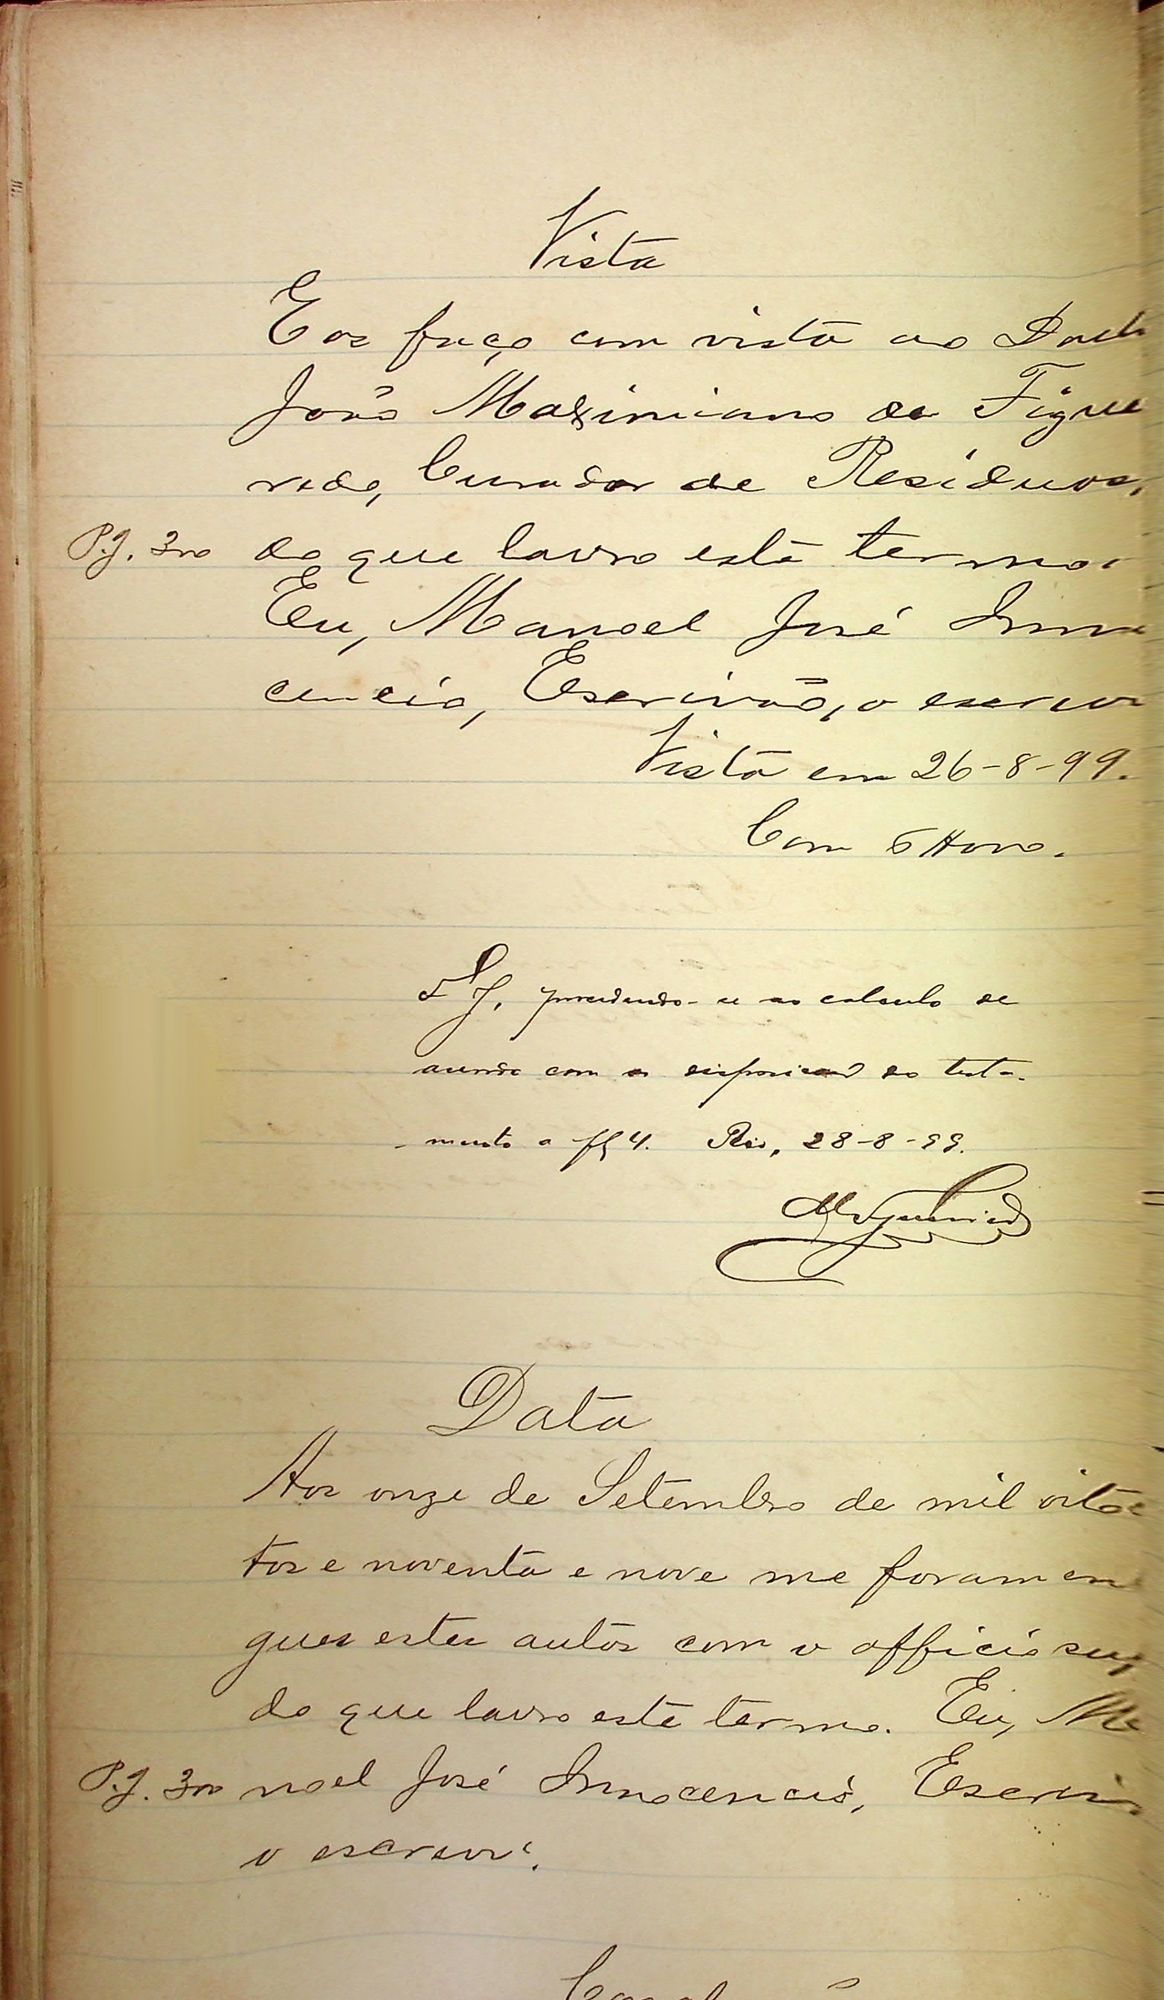 Vista
E os faço com vista ao Dout
João Maximiano de Figue
redo, Curador de Residuos,
P.J. 3oo do que lavro este termo.
Eu, Manoel José Inno
cencio, Escrivão, o escrevi
Vista em 26-8-99.
Com
F. J. procedendo-se ao calculo de
accordo com a disposição do testa-
mento a fl 4. Rio, 28-8-99.
MFigueiredo
Data
Aos onze de Setembro de mil oitoc
tos e noventa e nove me foram en
gues estes autos com o officio sup
do que lavro este termo. Eu, Ma
P.J. 3oo noel José Innocencio, Escrivã
o escrevi.